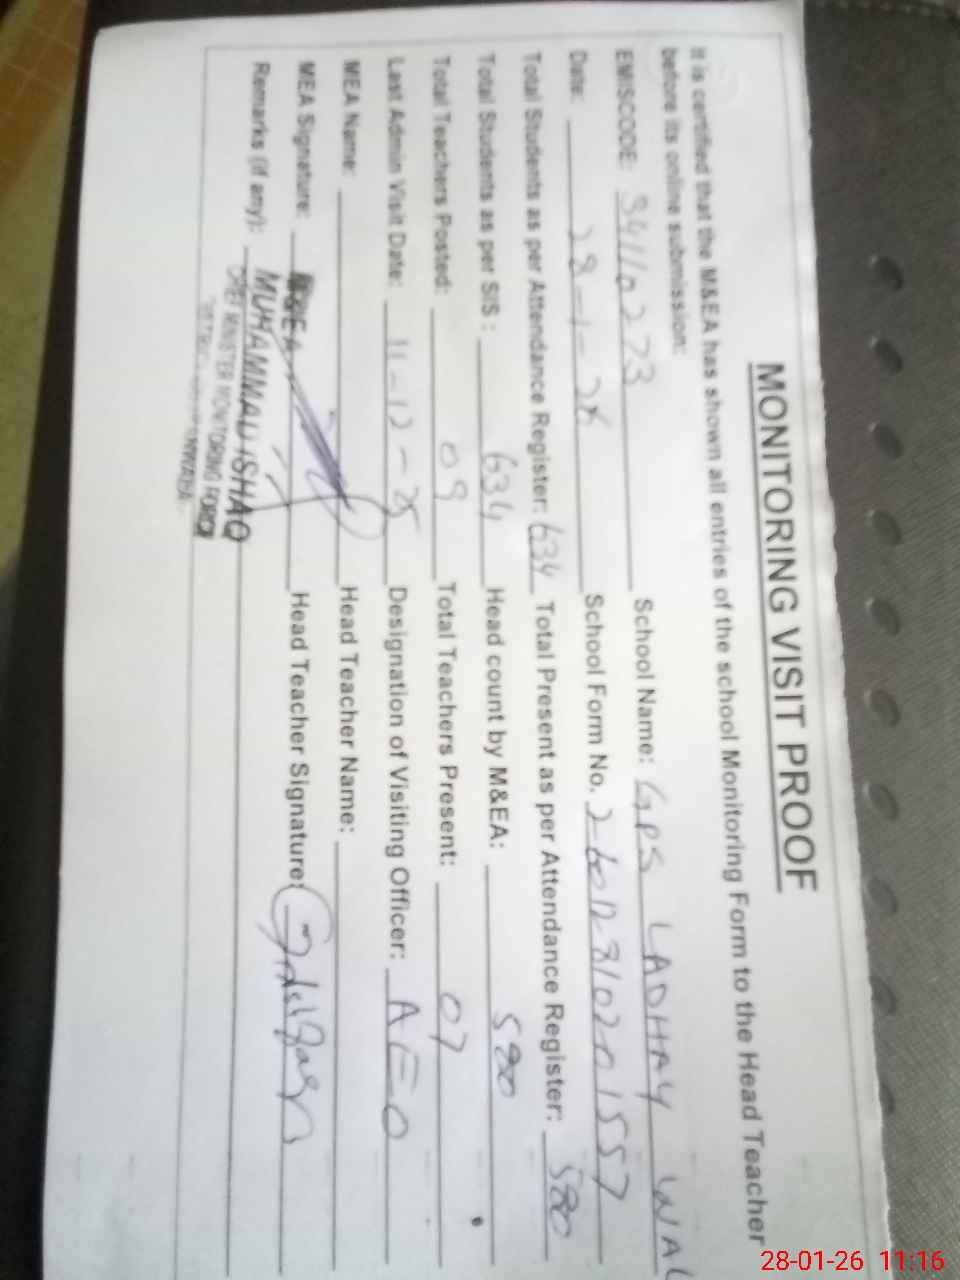 MONITORING VISIT PROOF
It is certified that the M&EA has shown all entries of the school Monitoring Form to the Head Teacher
before its online submission:
EMISCODE: 34110273 School Name: GPS LADHAY WAL
Date: 28-1-26 School Form No. 26012810201557
Total Students as per Attendance Register: 634 Total Present as per Attendance Register: 580
Total Students as per SIS: 634 Head count by M&EA: 580
Total Teachers Posted: 09 Total Teachers Present: 07
Last Admin Visit Date: 11-12-25 Designation of Visiting Officer: AEO
MEA Name: Head Teacher Name:
MEA Signature: M&EA Head Teacher Signature:
Remarks (if any): MUHAMMAD ISHAQ
CHIEF MINISTER MONITORING FORCE
28-01-26 11:16